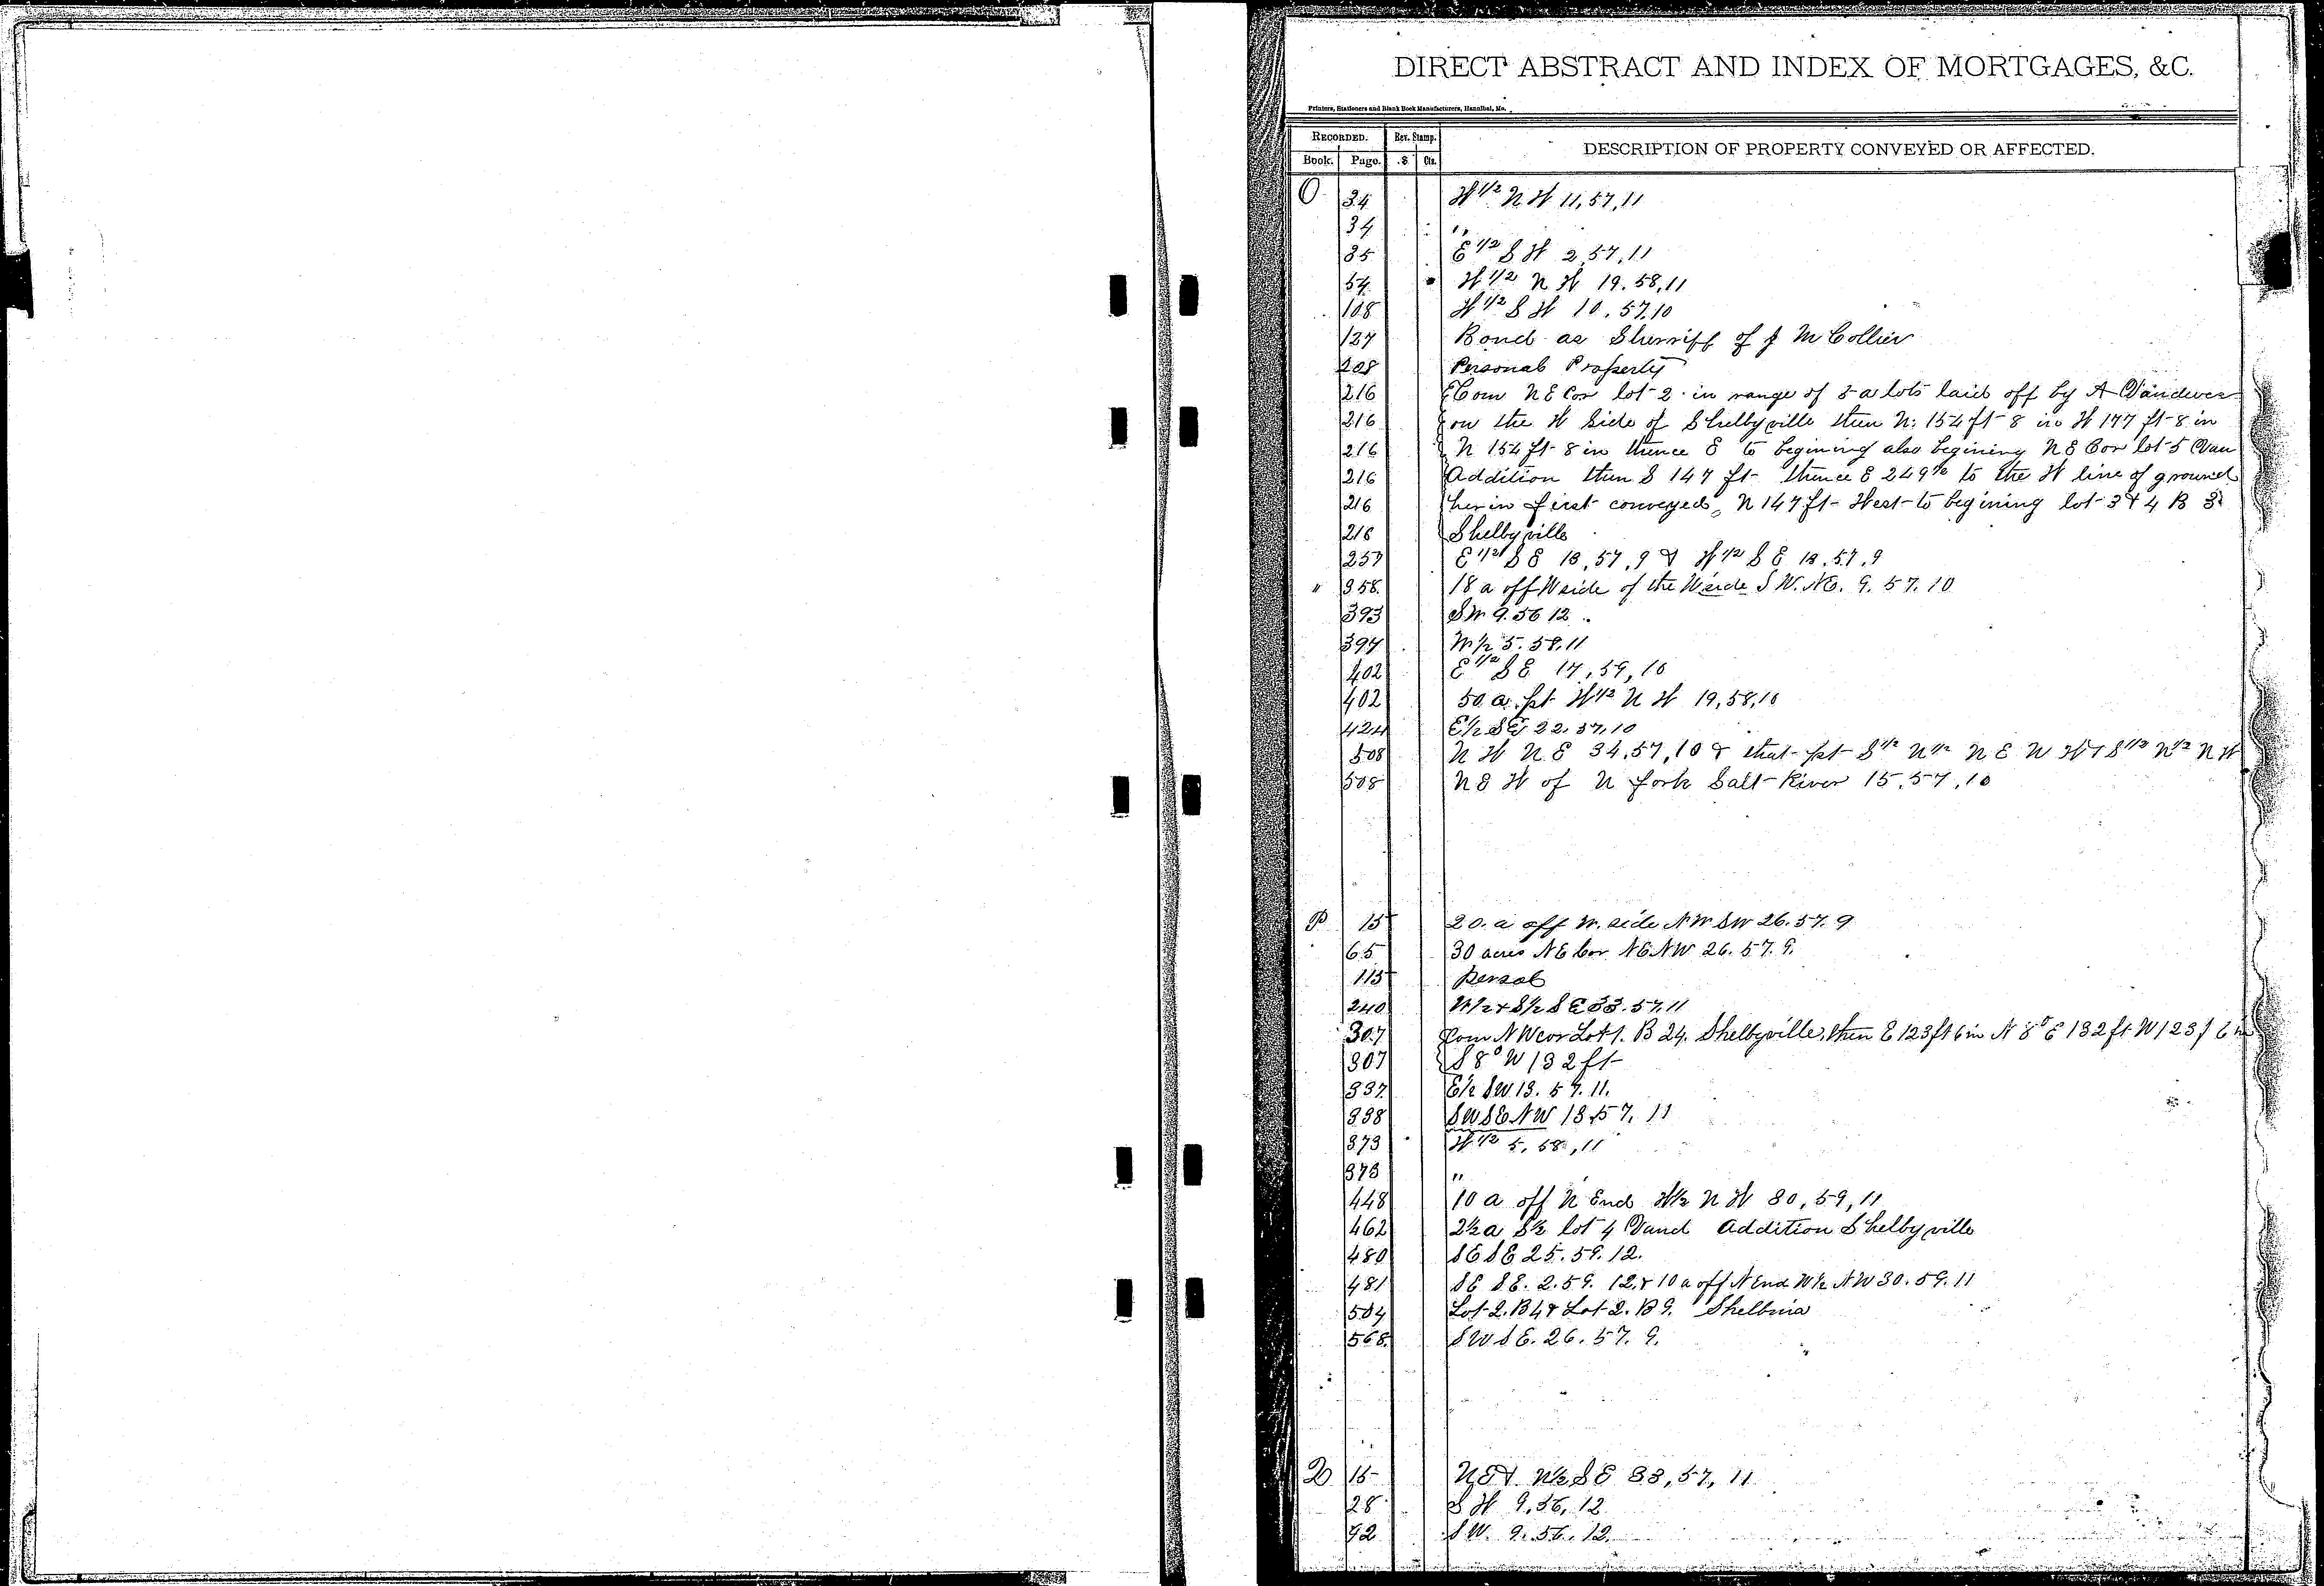 DIRECT ABSTRACT AND INDEX OF MORTGAGES, &C.
Printers, Stationers and Blank Book Manufacturers, Hannibal, Mo.
RECORDED. Rev. Stamp. DESCRIPTION OF PROPERTY CONVEYED OR AFFECTED.
Book. Page. $ Cts.
O 34 W 1/2 N W 11, 57, 11
34 "
35 E 1/2 S W 2, 57, 11
54 W 1/2 N W 19. 58, 11
108 W 1/2 S W 10, 57, 10
127 Bond as Sherriff of J M Collier
208 Personal Property
216 Com N E Cor lot 2 in range of 5 a lots laid off by A Vandever
216 on the W Side of Shelbyville then N. 154 ft 8 in W 177 ft 8 in
216 N 154 ft 8 in thence E to begining also begining N E Cor lot 5 Van
216 Addition then S 147 ft thence E 249 to the W line of ground
216 herin first conveyed, N 147 ft West to begining lot 3 & 4 B 3
216 Shelbyville
257 E 1/2 S E 13, 57, 9 & W 1/2 S E 13, 57, 9
" 358. 18 a off W side of the W side S W. NE. 9. 57. 10
393 SW 9. 56 12.
397 W 1/2 5. 58. 11
402 E 1/2 S E 17, 59, 10
402 50 a. pt W 1/2 N W 19, 58, 10
424 E 1/2 SE 22. 57. 10
508 N W N E 34, 57, 10 & that pt S 1/2 N 1/2 N E N W & S 1/2 N 1/2 N W
508 N E W of N fork Salt River 15, 57, 10
P 15 20. a off W. side NW SW 26. 57. 9
65 30 acres NE Cor NE NW 26. 57. 9.
115 Persal
240 W 1/2 & S 1/2 S E 33. 57. 11
307 Com NW cor Lot 1. B 24. Shelbyville, then E 123 ft 6 in N 8° E 132 ft W 123 f 6 in
307 S 8° W 132 ft
337 E 1/2 SW 13. 57. 11.
338 SW SE NW 13. 57. 11
373 W 1/2 5, 58, 11
373 "
448 10 a off N End W 1/2 N W 30, 59, 11
462 2 1/2 a S 1/2 lot 4 Vand Addition Shelbyville
480 SE SE 25. 59. 12.
481 SE SE. 2. 59. 12. & 10 a off N End W 1/2 NW 30. 59. 11
504 Lot 2. B 4 & Lot 2. B 9. Shelbina
568. SW SE. 26. 57. 9.
Q 15 N E & N 1/2 S E 33, 57, 11
28 S W 9, 56, 12
92 S W. 9. 56. 12.